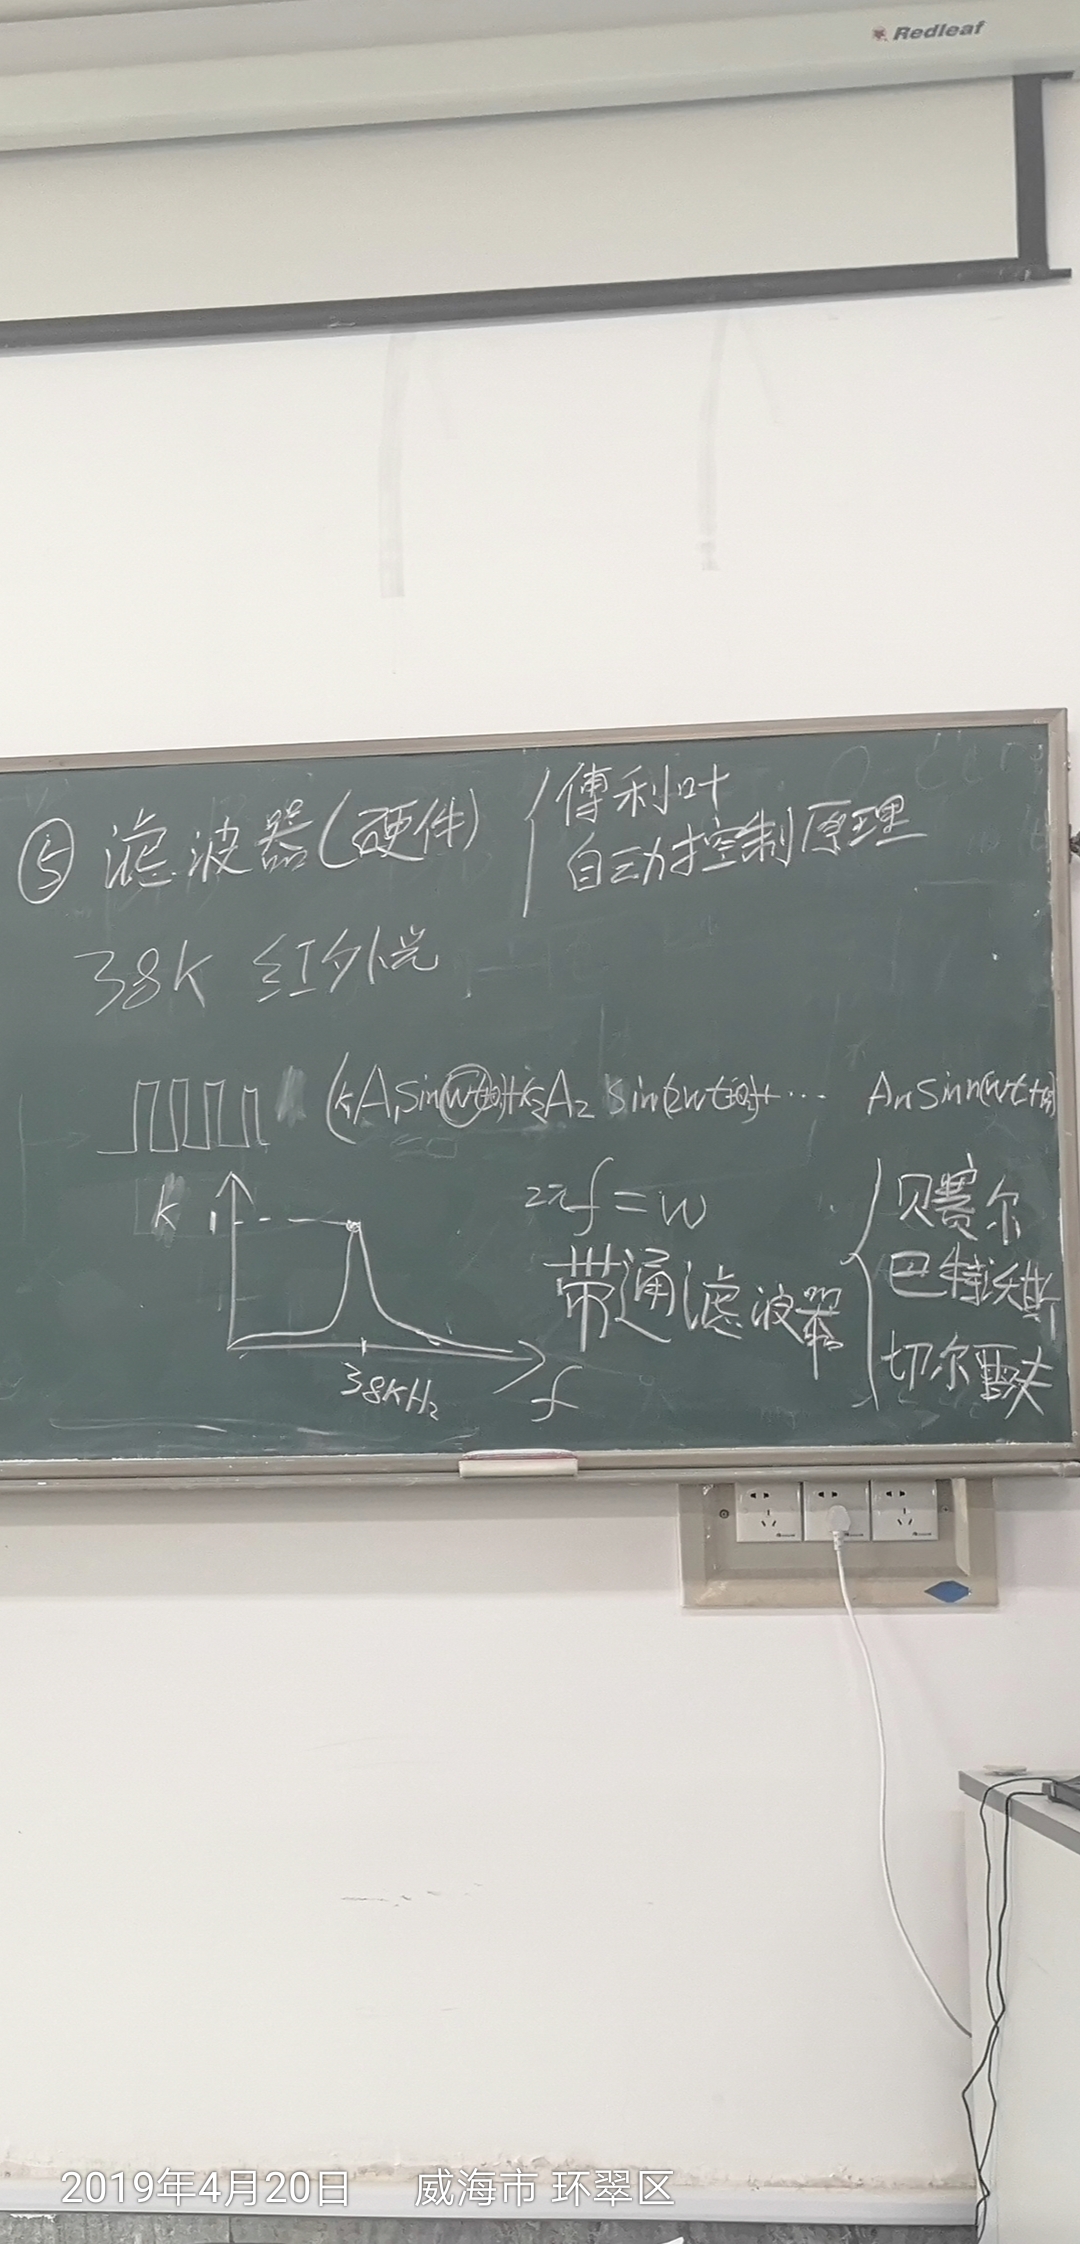 Redleaf
⑤ 滤波器(硬件)
傅利叶
自动控制原理
38K 红外光
(k₁A₁sin(wt+θ₁)+k₂A₂ sin(2wt+θ₂)+··· Ansinn(wt+θn)
k
1
2πf=w
带通滤波器
贝赛尔
巴特沃斯
切尔雪夫
38KHz
f
2019年4月20日 威海市 环翠区